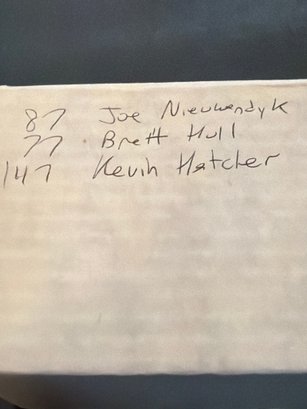 87 Joe Nieuwendyk
77 Brett Hull
147 Kevin Hatcher